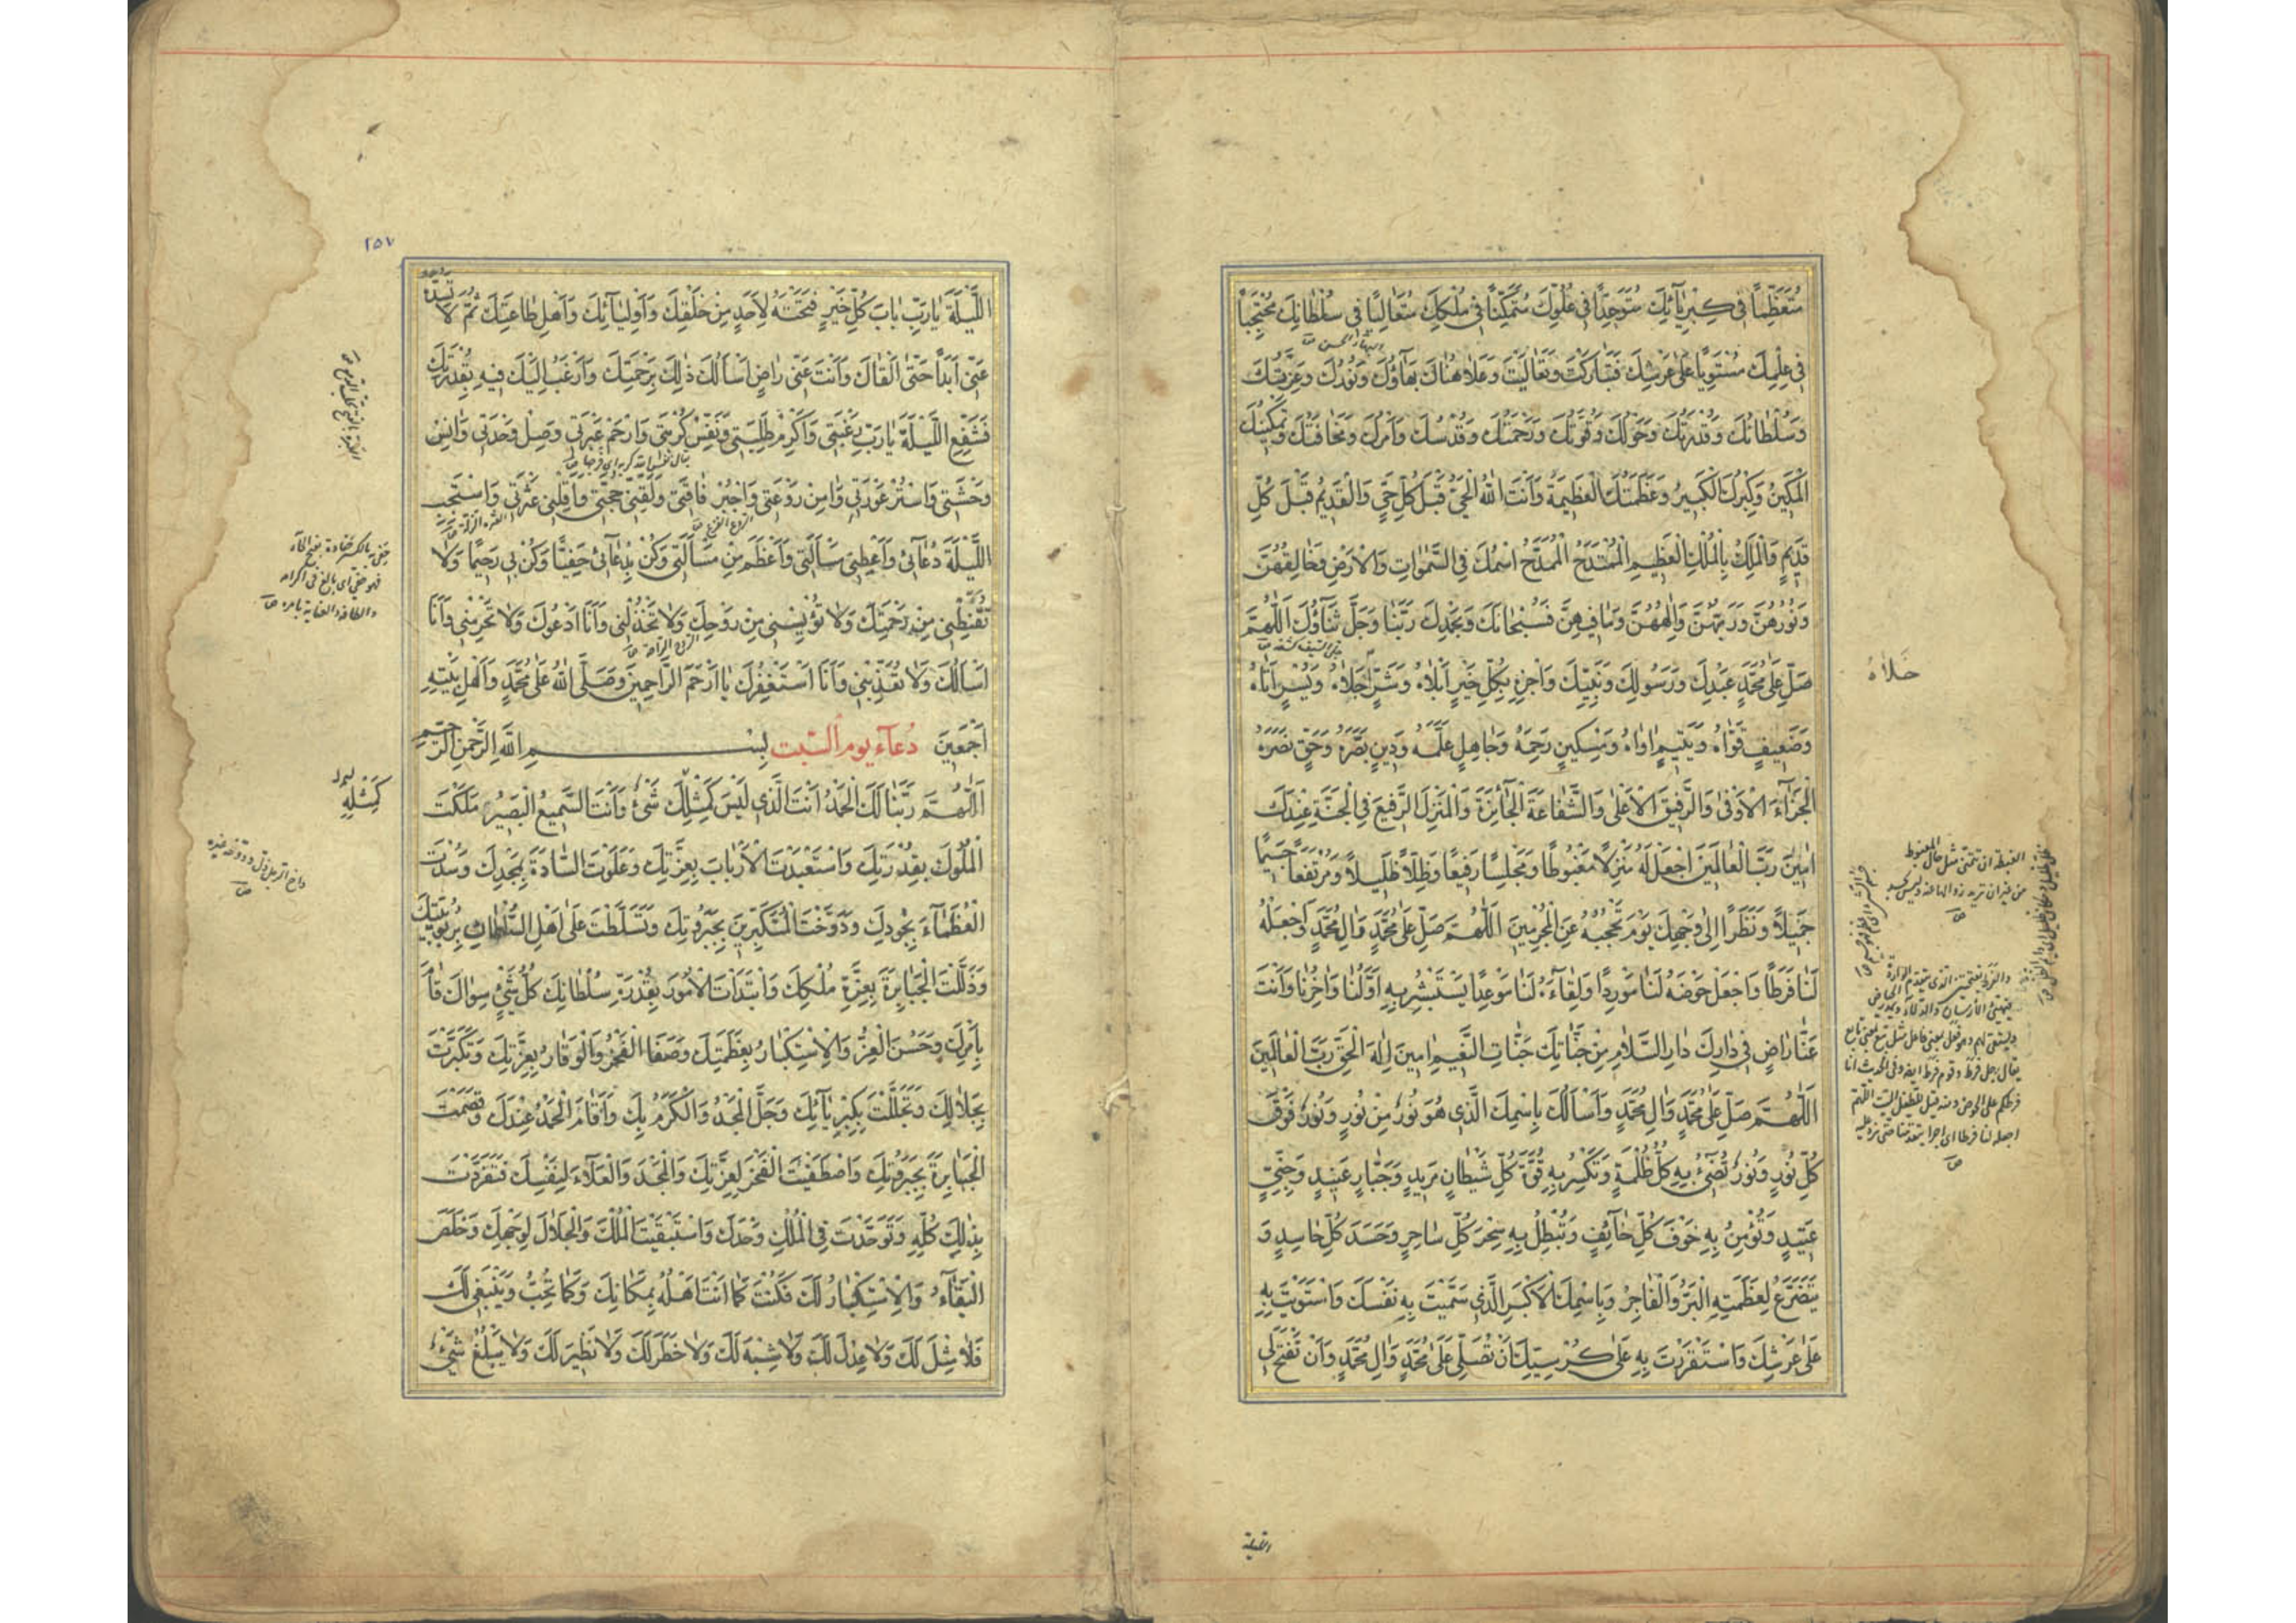 مُتَعَظِّمًا فِى كِبْرِيَآئِكَ مُتَوَحِّدًا فِى عُلُوِّكَ مُتَمَكِّنًا فِى مُلْكِكَ مُتَعَالِيًا فِى سُلْطَانِكَ مُحْتَجِبًا
فِى عِلْمِكَ مُسْتَوِيًا عَلَى عَرْشِكَ فَتَبَارَكْتَ وَتَعَالَيْتَ وَعَلَا هُنَاكَ بَهَآؤُكَ وَنُورُكَ وَعِزَّتُكَ
وَسُلْطَانُكَ وَقُدْرَتُكَ وَحَوْلُكَ وَقُوَّتُكَ وَرَحْمَتُكَ وَقُدْسُكَ وَاَمْرُكَ وَمَخَافَتُكَ وَتَمْكِينُكَ
الْمَكِينُ وَكِبْرُكَ الْكَبِيرُ وَعَظَمَتُكَ الْعَظِيمَةُ وَاَنْتَ اللهُ الْحَىُّ قَبْلَ كُلِّ حَىٍّ وَالْقَدِيمُ قَبْلَ كُلِّ
قَدِيمٍ وَالْمَلِكُ بِالْمُلْكِ الْعَظِيمِ الْمُمْتَدَحُ الْمُمَدَّحُ اسْمُكَ فِى السَّمٰوَاتِ وَالْاَرْضِ وَخَالِقُهُنَّ
وَنُورُهُنَّ وَرَبُّهُنَّ وَاِلٰهُهُنَّ وَمَا فِيهِنَّ فَسُبْحَانَكَ وَبِحَمْدِكَ رَبَّنَا وَجَلَّ ثَنَآؤُكَ اَللّٰهُمَّ
صَلِّ عَلَى مُحَمَّدٍ عَبْدِكَ وَرَسُولِكَ وَنَبِيِّكَ وَاجْزِهِ بِكُلِّ خَيْرٍ اَبْلَاهُ وَشَرٍّ جَلَاهُ وَيُسْرٍ اَتَاهُ
خَلَاهُ
وَضَعِيفٍ قَوَّاهُ وَيَتِيمٍ اٰوَاهُ وَمِسْكِينٍ رَحِمَهُ وَجَاهِلٍ عَلَّمَهُ وَدِينٍ بَصَّرَهُ وَحَقٍّ نَصَرَهُ
الْجَزَآءَ الْاَوْفٰى وَالرَّفِيقَ الْاَعْلٰى وَالشَّفَاعَةَ الْجَآئِزَةَ وَالْمَنْزِلَ الرَّفِيعَ فِى الْجَنَّةِ عِنْدَكَ
اٰمِينَ رَبَّ الْعَالَمِينَ اجْعَلْ لَهُ مَنْزِلًا مَغْبُوطًا وَمَجْلِسًا رَفِيعًا وَظِلًّا ظَلِيلًا وَمُرْتَفَعًا جَسِيمًا
جَمِيلًا وَنَظَرًا اِلٰى وَجْهِكَ يَوْمَ تَحْجُبُهُ عَنِ الْمُجْرِمِينَ اَللّٰهُمَّ صَلِّ عَلَى مُحَمَّدٍ وَاٰلِ مُحَمَّدٍ وَاجْعَلْهُ
لَنَا فَرَطًا وَاجْعَلْ حَوْضَهُ لَنَا مَوْرِدًا وَلِقَآءَهُ لَنَا مَوْعِدًا يَسْتَبْشِرُ بِهِ اَوَّلُنَا وَاٰخِرُنَا وَاَنْتَ
عَنَّا رَاضٍ فِى دَارِكَ دَارِ السَّلَامِ مِنْ جَنَّاتِكَ جَنَّاتِ النَّعِيمِ اٰمِينَ اِلٰهَ الْحَقِّ رَبَّ الْعَالَمِينَ
اَللّٰهُمَّ صَلِّ عَلَى مُحَمَّدٍ وَاٰلِ مُحَمَّدٍ وَاَسْاَلُكَ بِاسْمِكَ الَّذِى هُوَ نُورٌ مِنْ نُورٍ وَنُورٌ فَوْقَ
كُلِّ نُورٍ وَنُورٌ تُضِىءُ بِهِ كُلَّ ظُلْمَةٍ وَتَكْسِرُ بِهِ قُوَّةَ كُلِّ شَيْطَانٍ مَرِيدٍ وَجَبَّارٍ عَنِيدٍ وَجِنِّىٍّ
عَتِيدٍ وَتُؤْمِنُ بِهِ خَوْفَ كُلِّ خَآئِفٍ وَتُبْطِلُ بِهِ سِحْرَ كُلِّ سَاحِرٍ وَحَسَدَ كُلِّ حَاسِدٍ وَ
يَتَضَرَّعُ لِعَظَمَتِهِ الْبَرُّ وَالْفَاجِرُ وَبِاسْمِكَ الْاَكْبَرِ الَّذِى سَمَّيْتَ بِهِ نَفْسَكَ وَاسْتَوَيْتَ بِهِ
عَلٰى عَرْشِكَ وَاسْتَقْرَرْتَ بِهِ عَلٰى كُرْسِيِّكَ اَنْ تُصَلِّىَ عَلٰى مُحَمَّدٍ وَاٰلِ مُحَمَّدٍ وَاَنْ تَفْتَحَ لِى
الليلة
٢٥٧
اللَّيْلَةَ يَا رَبِّ بَابَ كُلِّ خَيْرٍ فَتَحْتَهُ لِاَحَدٍ مِنْ خَلْقِكَ وَاَوْلِيَآئِكَ وَاَهْلِ طَاعَتِكَ ثُمَّ لَا تَسُدَّهُ
عَنِّى اَبَدًا حَتّٰى اَلْقَاكَ وَاَنْتَ عَنِّى رَاضٍ اَسْاَلُكَ ذٰلِكَ بِرَحْمَتِكَ وَاَرْغَبُ اِلَيْكَ فِيهِ بِقُدْرَتِكَ
فَشَفِّعِ اللَّيْلَةَ يَا رَبِّ رَغْبَتِى وَاَكْرِمْ طَلِبَتِى وَنَفِّسْ كُرْبَتِى وَارْحَمْ عَبْرَتِى وَصِلْ وَحْدَتِى وَاٰنِسْ
وَحْشَتِى وَاسْتُرْ عَوْرَتِى وَاٰمِنْ رَوْعَتِى وَاجْبُرْ فَاقَتِى وَلَقِّنِى حُجَّتِى وَاَقِلْنِى عَثْرَتِى وَاسْتَجِبِ
اللَّيْلَةَ دُعَآئِى وَاَعْطِنِى مَسْاَلَتِى وَاَعْظَمَ مِنْ مَسْاَلَتِى وَكُنْ بِدُعَآئِى حَفِيًّا وَكُنْ بِى رَحِيمًا وَلَا
تُقَنِّطْنِى مِنْ رَحْمَتِكَ وَلَا تُؤْيِسْنِى مِنْ رَوْحِكَ وَلَا تَخْذُلْنِى وَاَنَا اَدْعُوكَ وَلَا تَحْرِمْنِى وَاَنَا
اَسْاَلُكَ وَلَا تُعَذِّبْنِى وَاَنَا اَسْتَغْفِرُكَ يَا اَرْحَمَ الرَّاحِمِينَ وَصَلَّى اللهُ عَلَى مُحَمَّدٍ وَاَهْلِ بَيْتِهِ
اَجْمَعِينَ دُعَآءُ يَوْمِ السَّبْتِ بِسْمِ اللهِ الرَّحْمٰنِ الرَّحِيمِ
اَللّٰهُمَّ رَبَّنَا لَكَ الْحَمْدُ اَنْتَ الَّذِى لَيْسَ كَمِثْلِكَ شَىْءٌ وَاَنْتَ السَّمِيعُ الْبَصِيرُ مَلَكْتَ
كَمِثْلِهِ
الْمُلُوكَ بِقُدْرَتِكَ وَاسْتَعْبَدْتَ الْاَرْبَابَ بِعِزَّتِكَ وَعَلَوْتَ السَّادَةَ بِمَجْدِكَ وَسُدْتَ
الْعُظَمَآءَ بِجُودِكَ وَدَوَّخْتَ الْمُتَكَبِّرِينَ بِجَبَرُوتِكَ وَتَسَلَّطْتَ عَلٰى اَهْلِ السُّلْطَانِ بِرُبُوبِيَّتِكَ
وَذَلَّلْتَ الْجَبَابِرَةَ بِعِزَّةِ مُلْكِكَ وَابْتَدَاْتَ الْاُمُورَ بِقُدْرَةِ سُلْطَانِكَ كُلُّ شَىْءٍ سِوَاكَ قَامَ
بِاَمْرِكَ وَحَسُنَ الْعِزُّ وَالْاِسْتِكْبَارُ بِعَظَمَتِكَ وَصَفَا الْفَخْرُ وَالْوَقَارُ بِعِزَّتِكَ وَتَكَبَّرْتَ
بِجَلَالِكَ وَتَجَلَّلْتَ بِكِبْرِيَآئِكَ وَجَلَّ الْمَجْدُ وَالْكَرَمُ بِكَ وَاَقَامَ الْحَمْدُ عِنْدَكَ وَقَصَمْتَ
الْجَبَابِرَةَ بِجَبَرُوتِكَ وَاصْطَفَيْتَ الْفَخْرَ لِعِزَّتِكَ وَالْمَجْدَ وَالْعَلَآءَ لِنَفْسِكَ فَتَفَرَّدْتَ
بِذٰلِكَ كُلِّهِ وَتَوَحَّدْتَ فِى الْمُلْكِ وَحْدَكَ وَاسْتَبْقَيْتَ الْمُلْكَ وَالْجَلَالَ لِوَجْهِكَ وَخَلَصَ
الْبَقَآءُ وَالْاِسْتِكْبَارُ لَكَ فَكُنْتَ كَمَا اَنْتَ اَهْلُهُ بِمَكَانِكَ وَكَمَا تُحِبُّ وَيَنْبَغِى لَكَ
فَلَا مِثْلَ لَكَ وَلَا عِدْلَ لَكَ وَلَا شِبْهَ لَكَ وَلَا خَطَرَ لَكَ وَلَا نَظِيرَ لَكَ وَلَا يَبْلُغُ شَىْءٌ